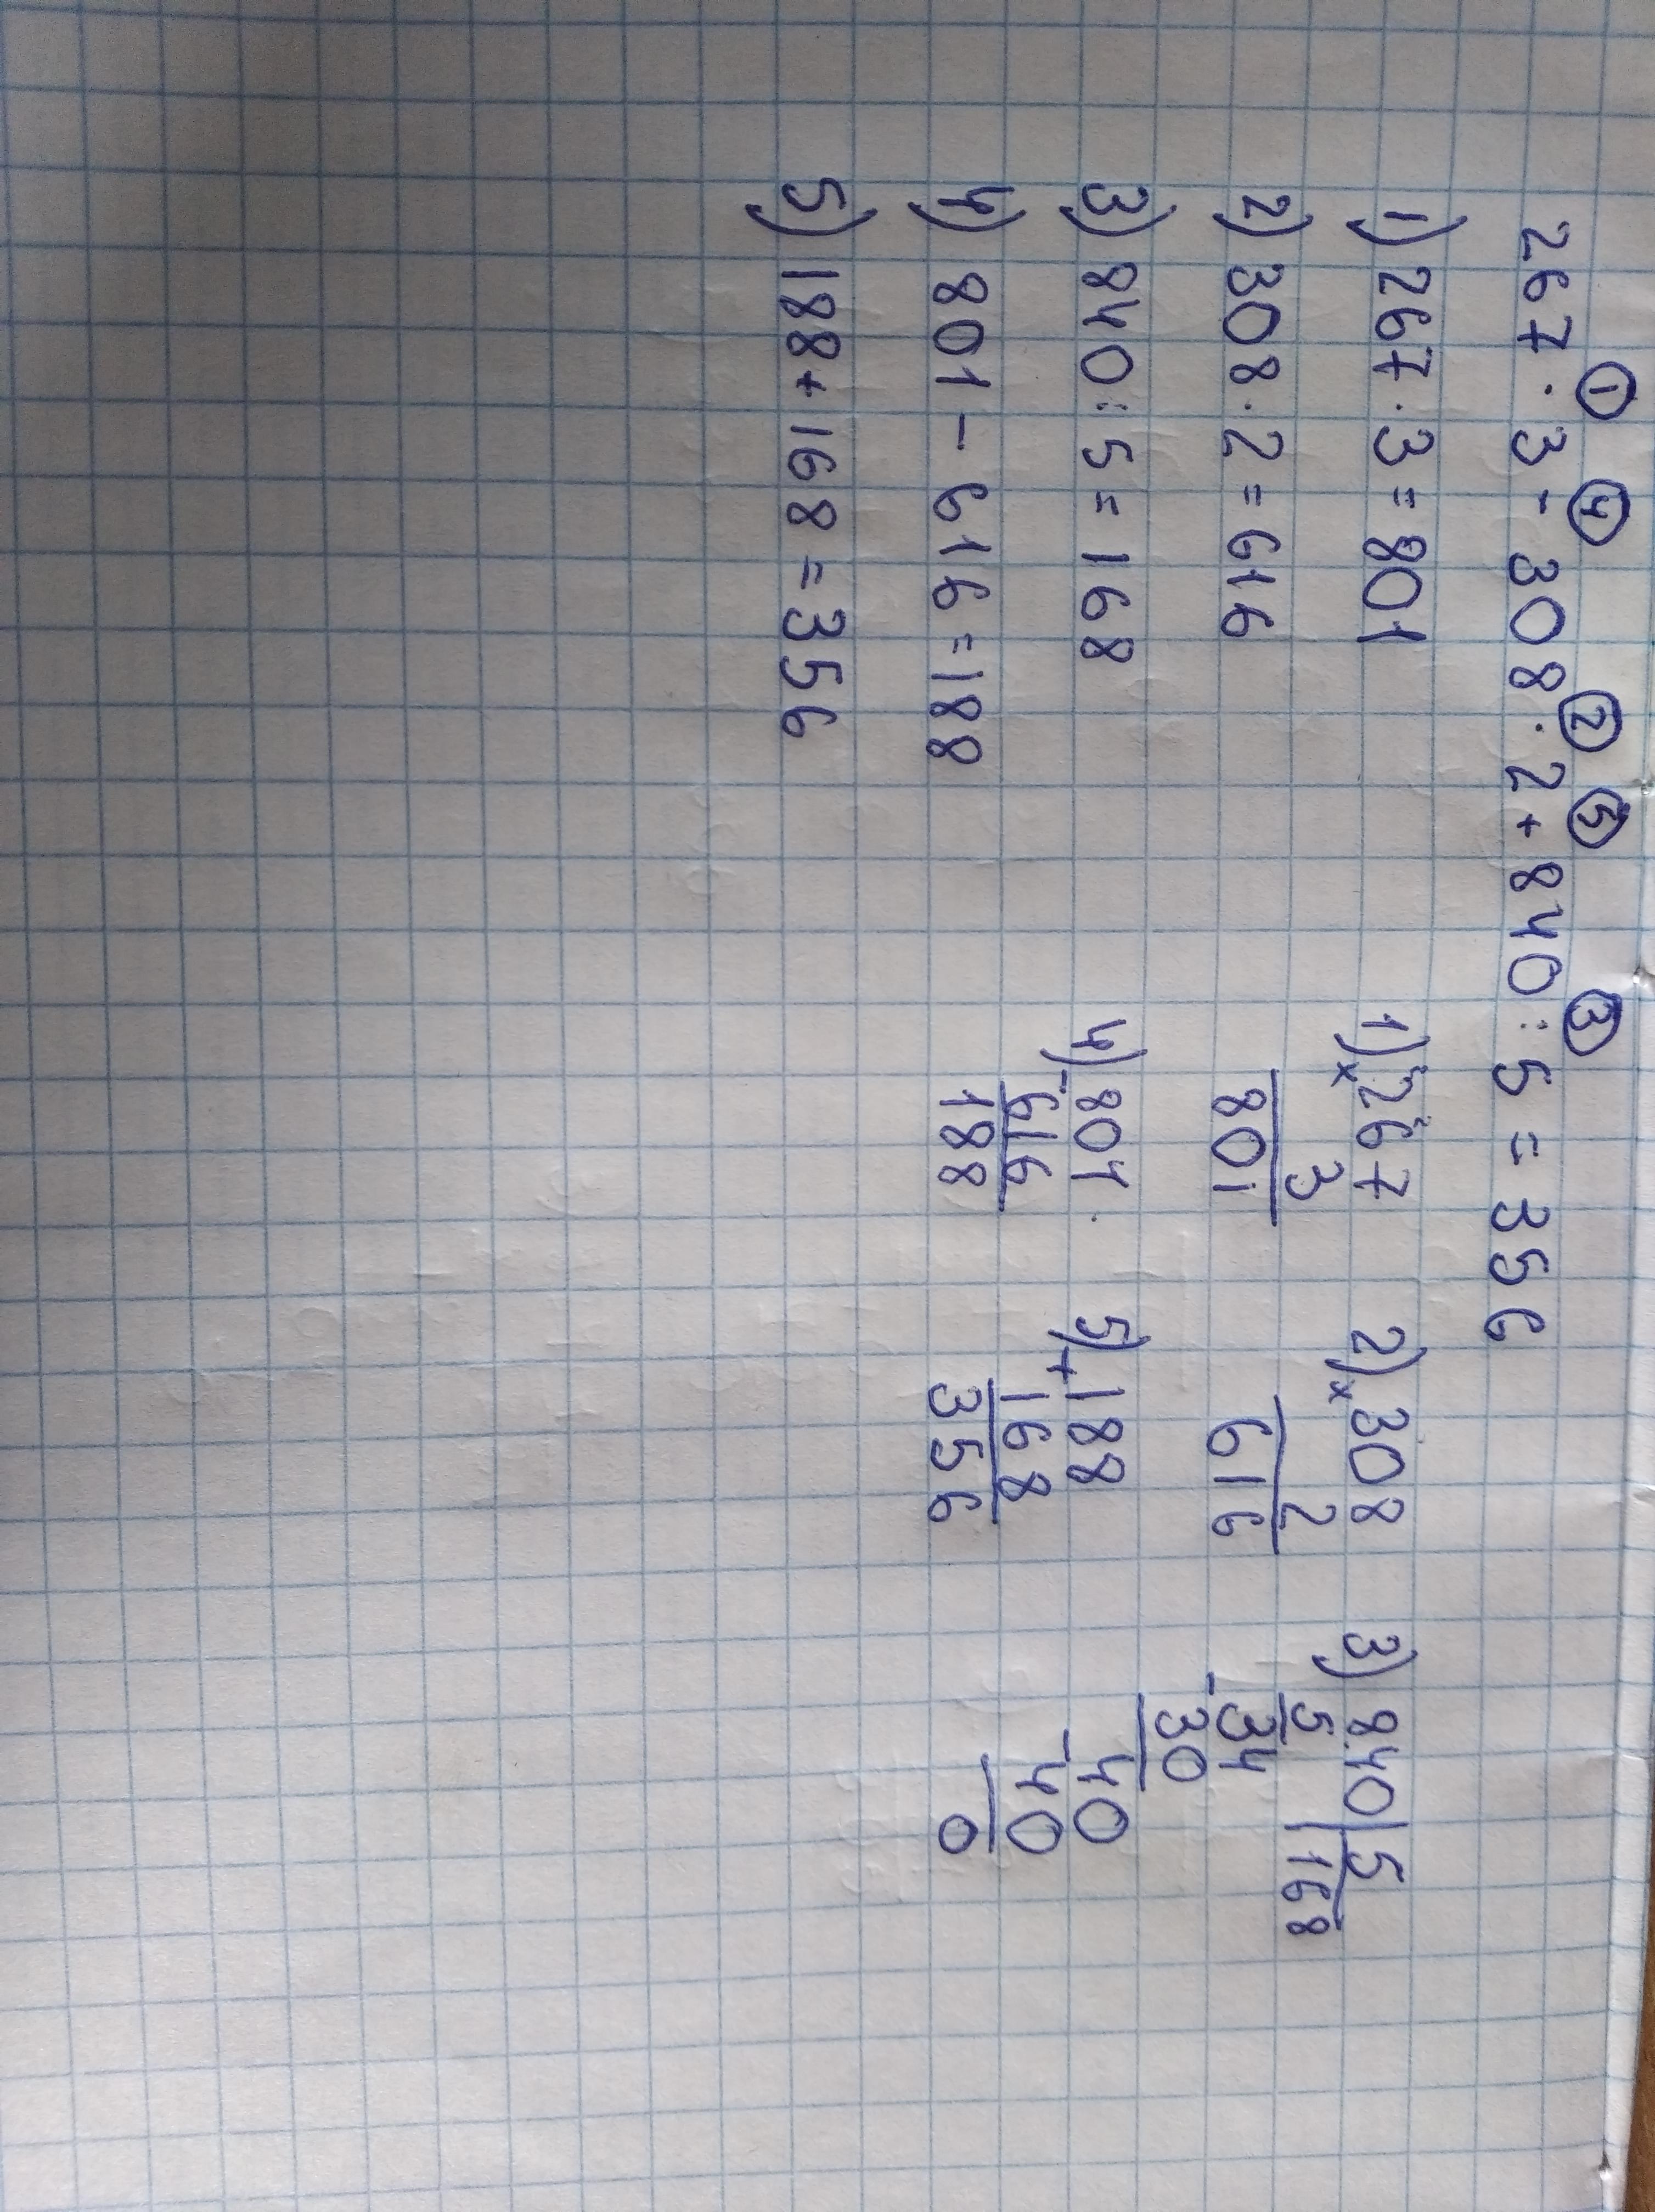 ① ④ ② ⑤ ③
267 · 3 - 308 · 2 + 840 : 5 = 356
1) 267 · 3 = 801
2) 308 · 2 = 616
3) 840 : 5 = 168
4) 801 - 616 = 188
5) 188 + 168 = 356
1) × 267
3
801
2) × 308
2
616
3) 840 | 5
5 | 168
- 34
30
- 40
40
0
4) - 801
616
188
5) + 188
168
356